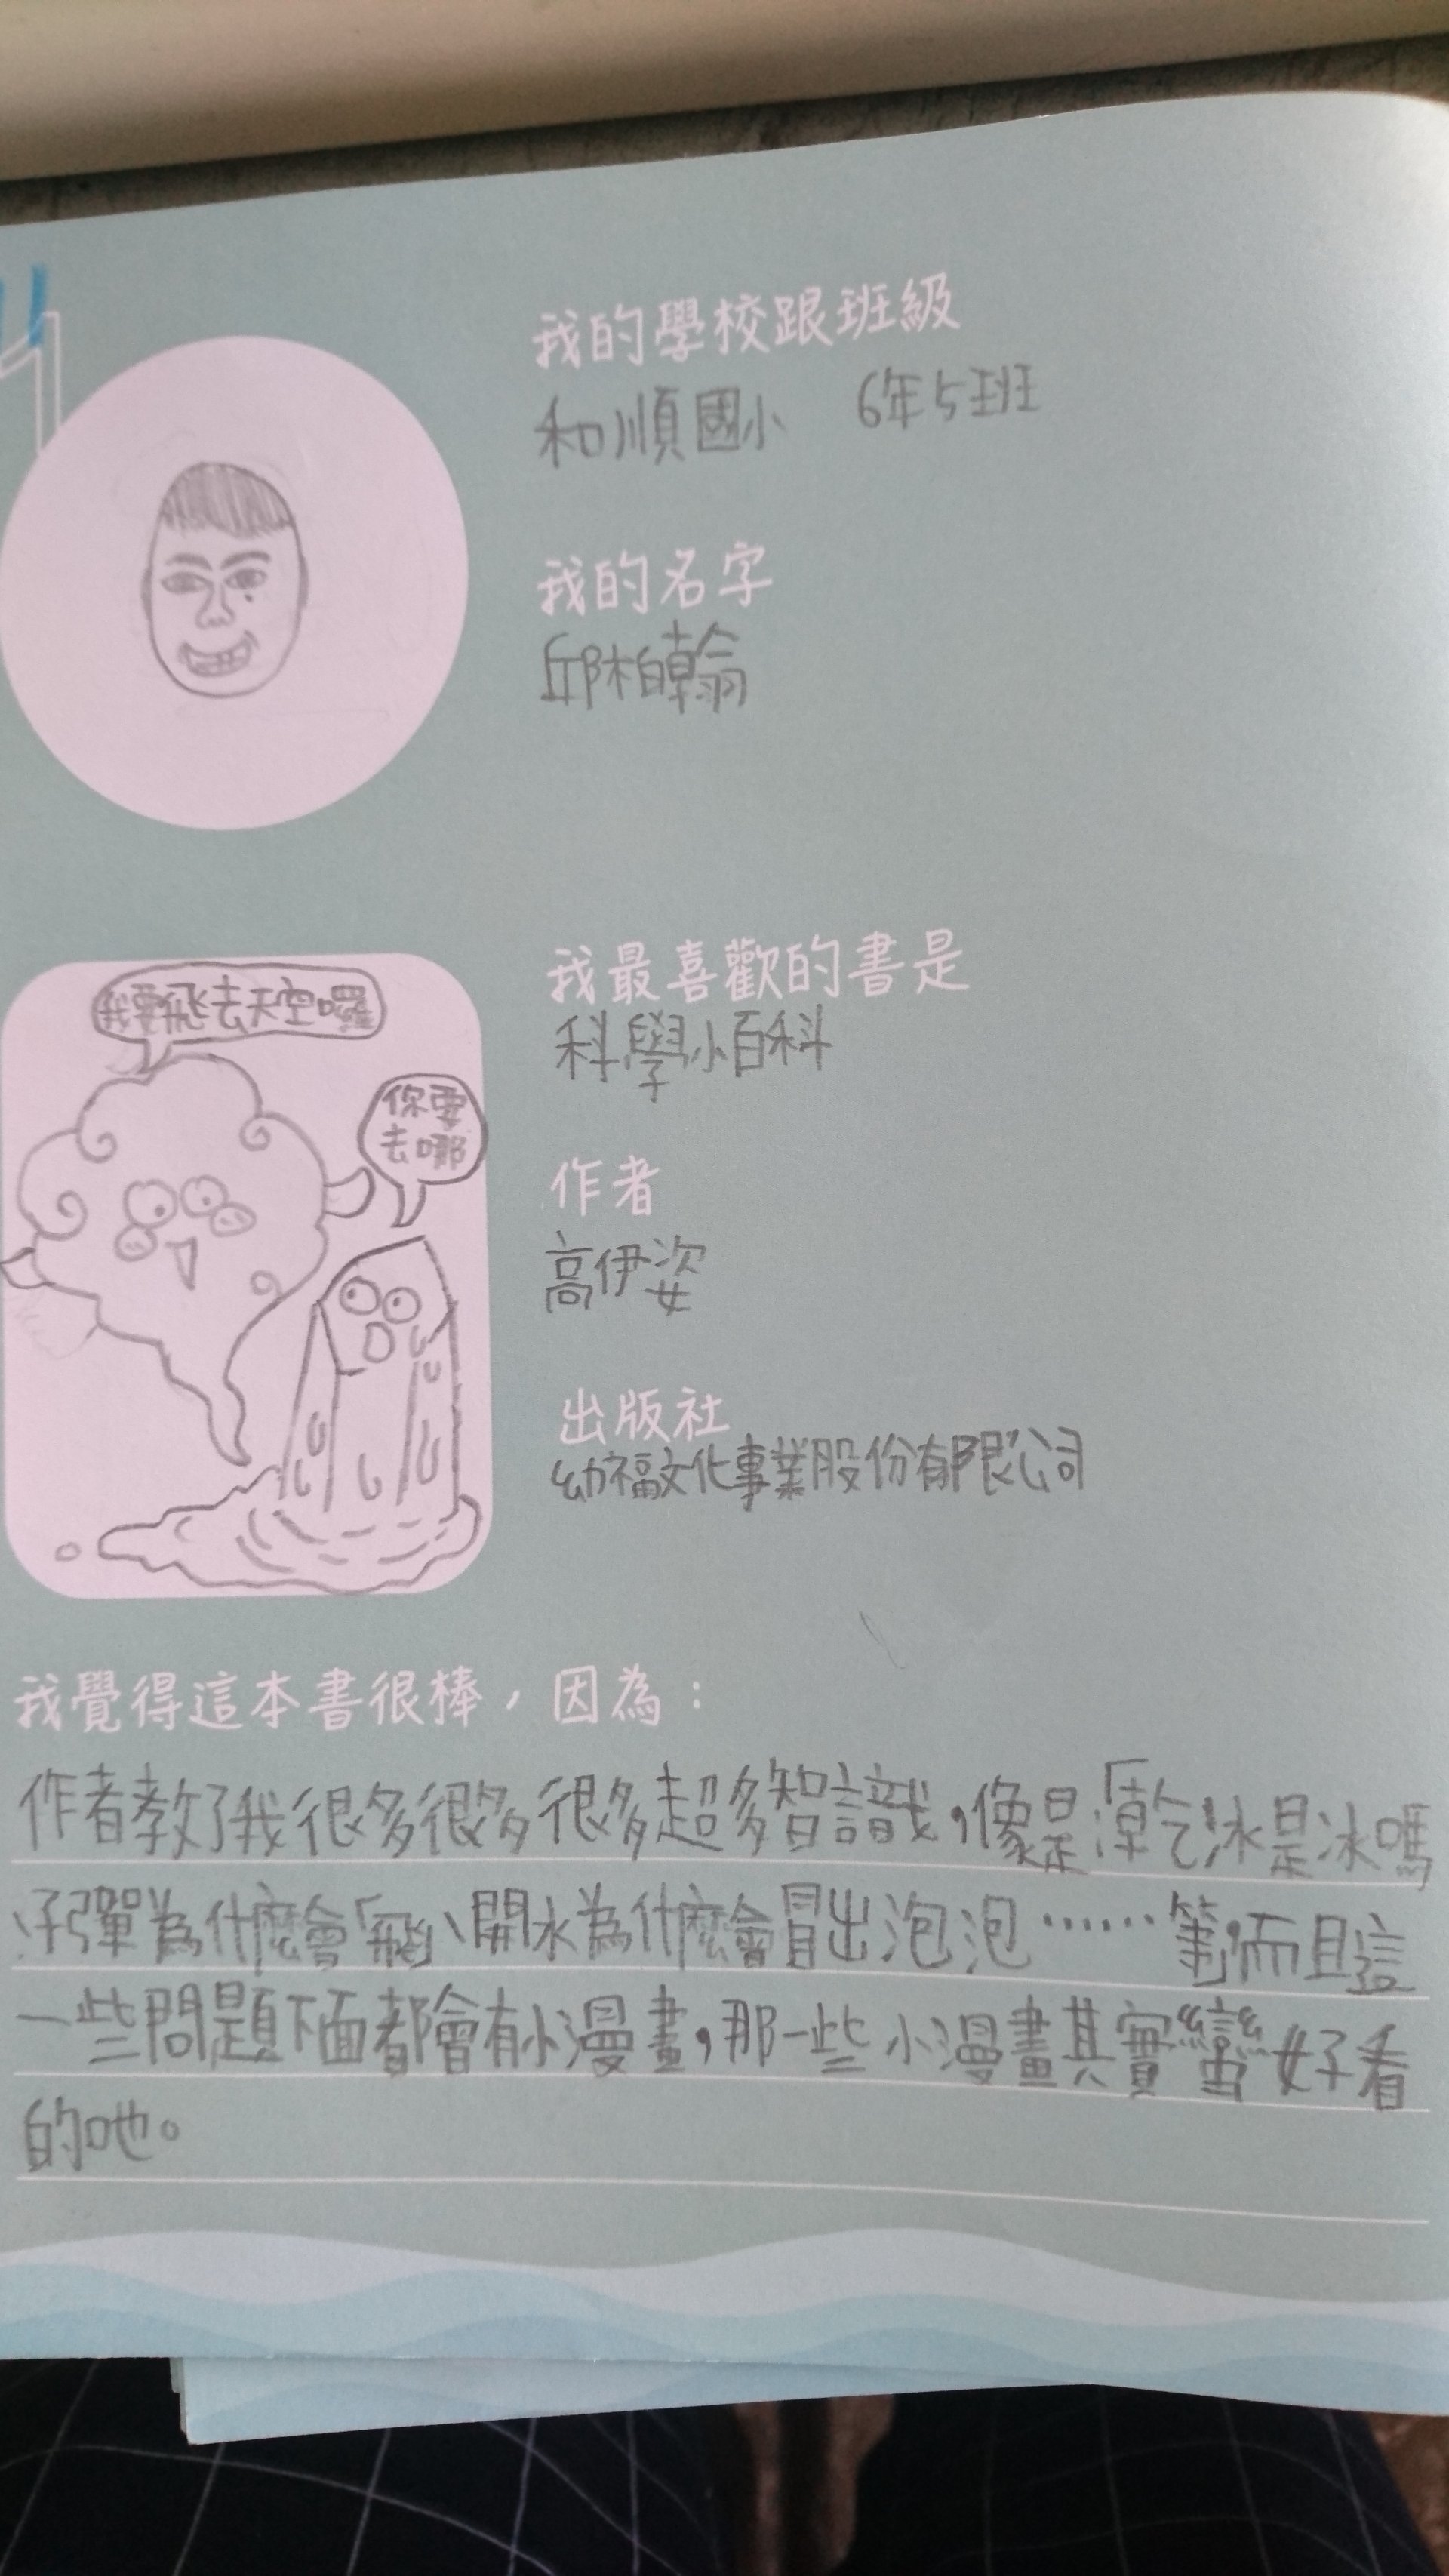 我的學校跟班級
和順國小 6年5班
我的名字
邱柏翰
我最喜歡的書是
科學小百科
作者
高伊姿
出版社
幼福文化事業股份有限公司
我要飛去天空囉
你要
去哪
我覺得這本書很棒，因為：
作者教了我很多很多很多超多智識，像是「乾冰是冰嗎
、子彈為什麼會「飛」、開水為什麼會冒出泡泡……等，而且這
一些問題下面都會有小漫畫，那一些小漫畫其實蠻好看
的吔。